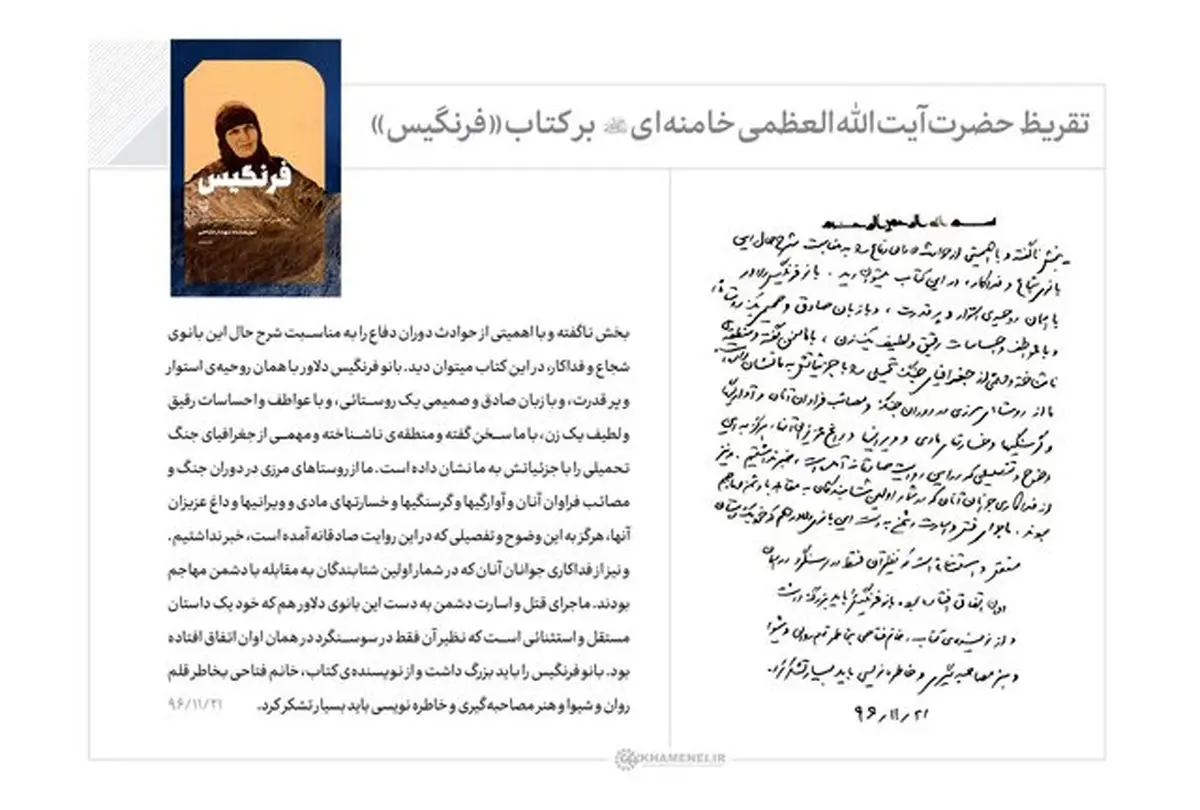 تقریظ حضرت آیت‌الله‌العظمی خامنه‌ای بر کتاب «فرنگیس»
فرنگیس
بخش ناگفته و با اهمیتی از حوادث دوران دفاع را به مناسبت شرح حال این بانوی
شجاع و فداکار، در این کتاب میتوان دید. بانو فرنگیس دلاور با همان روحیه‌ی استوار
و پر قدرت، و با زبان صادق و صمیمی یک روستائی، و با عواطف و احساسات رقیق
و لطیف یک زن، با ما سخن گفته و منطقه‌ی ناشناخته و مهمی از جغرافیای جنگ
تحمیلی را با جزئیاتش به ما نشان داده است. ما از روستاهای مرزی در دوران جنگ و
مصائب فراوان آنان و آوارگیها و گرسنگیها و خسارتهای مادی و ویرانیها و داغ عزیزان
آنها، هرگز به این وضوح و تفصیلی که در این روایت صادقانه آمده است، خبر نداشتیم.
و نیز از فداکاری جوانان آنان که در شمار اولین شتابندگان به مقابله با دشمن مهاجم
بودند. ماجرای قتل و اسارت دشمن به دست این بانوی دلاور هم که خود یک داستان
مستقل و استثنائی است که نظیر آن فقط در سوسنگرد در همان اوان اتفاق افتاده
بود. بانو فرنگیس را باید بزرگ داشت و از نویسنده‌ی کتاب، خانم فتاحی بخاطر قلم
روان و شیوا و هنر مصاحبه‌گیری و خاطره نویسی باید بسیار تشکر کرد. ۹۶/۱۱/۲۱
بخش ناگفته و با اهمیتی از حوادث دوران دفاع را به مناسبت شرح حال این
بانوی شجاع و فداکار، در این کتاب میتوان دید. بانو فرنگیس دلاور
با همان روحیه‌ی استوار و پر قدرت، و با زبان صادق و صمیمی یک روستائی،
و با عواطف و احساسات رقیق و لطیف یک زن، با ما سخن گفته و منطقه‌ی
ناشناخته و مهمی از جغرافیای جنگ تحمیلی را با جزئیاتش به ما نشان داده است.
ما از روستاهای مرزی در دوران جنگ و مصائب فراوان آنان و آوارگیها
و گرسنگیها و خسارتهای مادی و ویرانیها و داغ عزیزان آنها، هرگز به این
وضوح و تفصیلی که در این روایت صادقانه آمده است، خبر نداشتیم. و نیز
از فداکاری جوانان آنان که در شمار اولین شتابندگان به مقابله با دشمن مهاجم
بودند. ماجرای قتل و اسارت دشمن به دست این بانوی دلاور هم که خود یک داستان
مستقل و استثنائی است که نظیر آن فقط در سوسنگرد در همان
اوان اتفاق افتاده بود. بانو فرنگیس را باید بزرگ داشت
و از نویسنده‌ی کتاب، خانم فتاحی بخاطر قلم روان و شیوا
و هنر مصاحبه‌گیری و خاطره نویسی باید بسیار تشکر کرد.
۹۶/۱۱/۲۱
KHAMENEI.IR